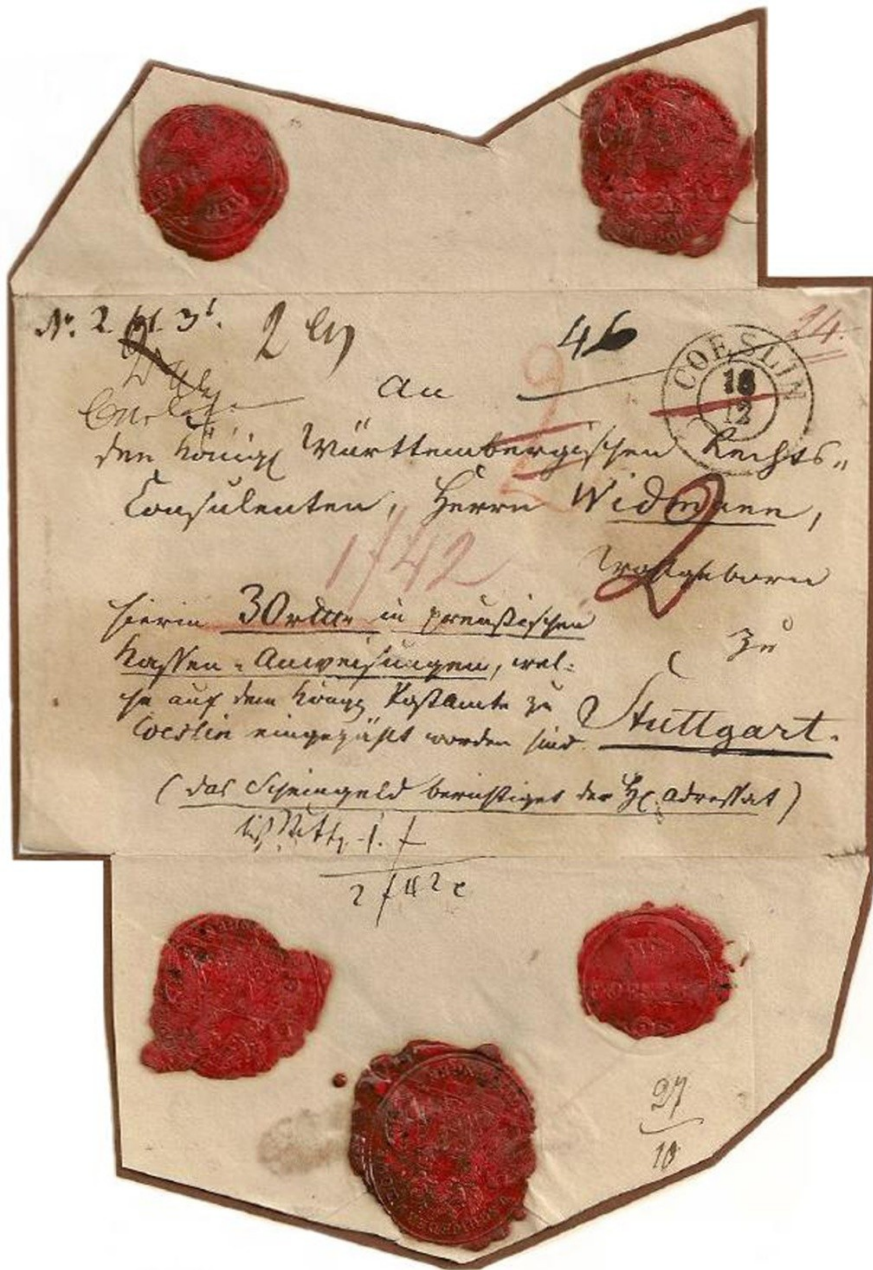 No. 2
2
46
24
COESLIN
18
12
An
den Königl Württembergischen Rechts-
Consulenten, Herrn Widmann,
Wohlgeborn
hierin 30 rthlr in preußischen
Kassen-Anweisungen, wel-
che auf dem Königl Postamte zu
Coeslin eingezählt worden sind.
zu
Stuttgart.
(das Scheingeld berichtiget der H. Adressat)
1f42
2
2f42x
27
10